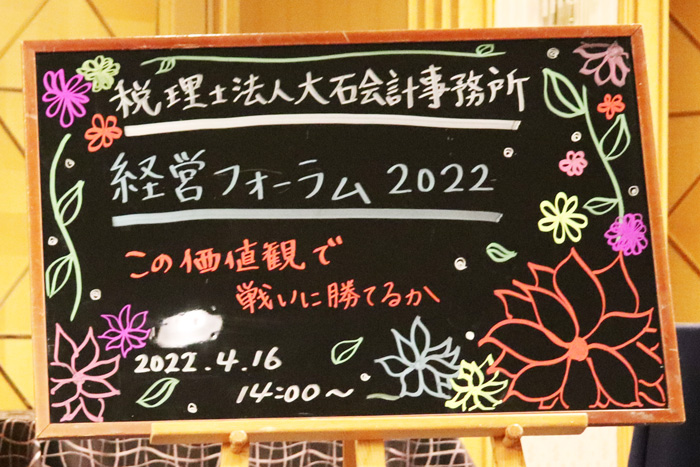 税理士法人大石会計事務所
経営フォーラム 2022
この価値観で
戦いに勝てるか
2022.4.16
14:00～